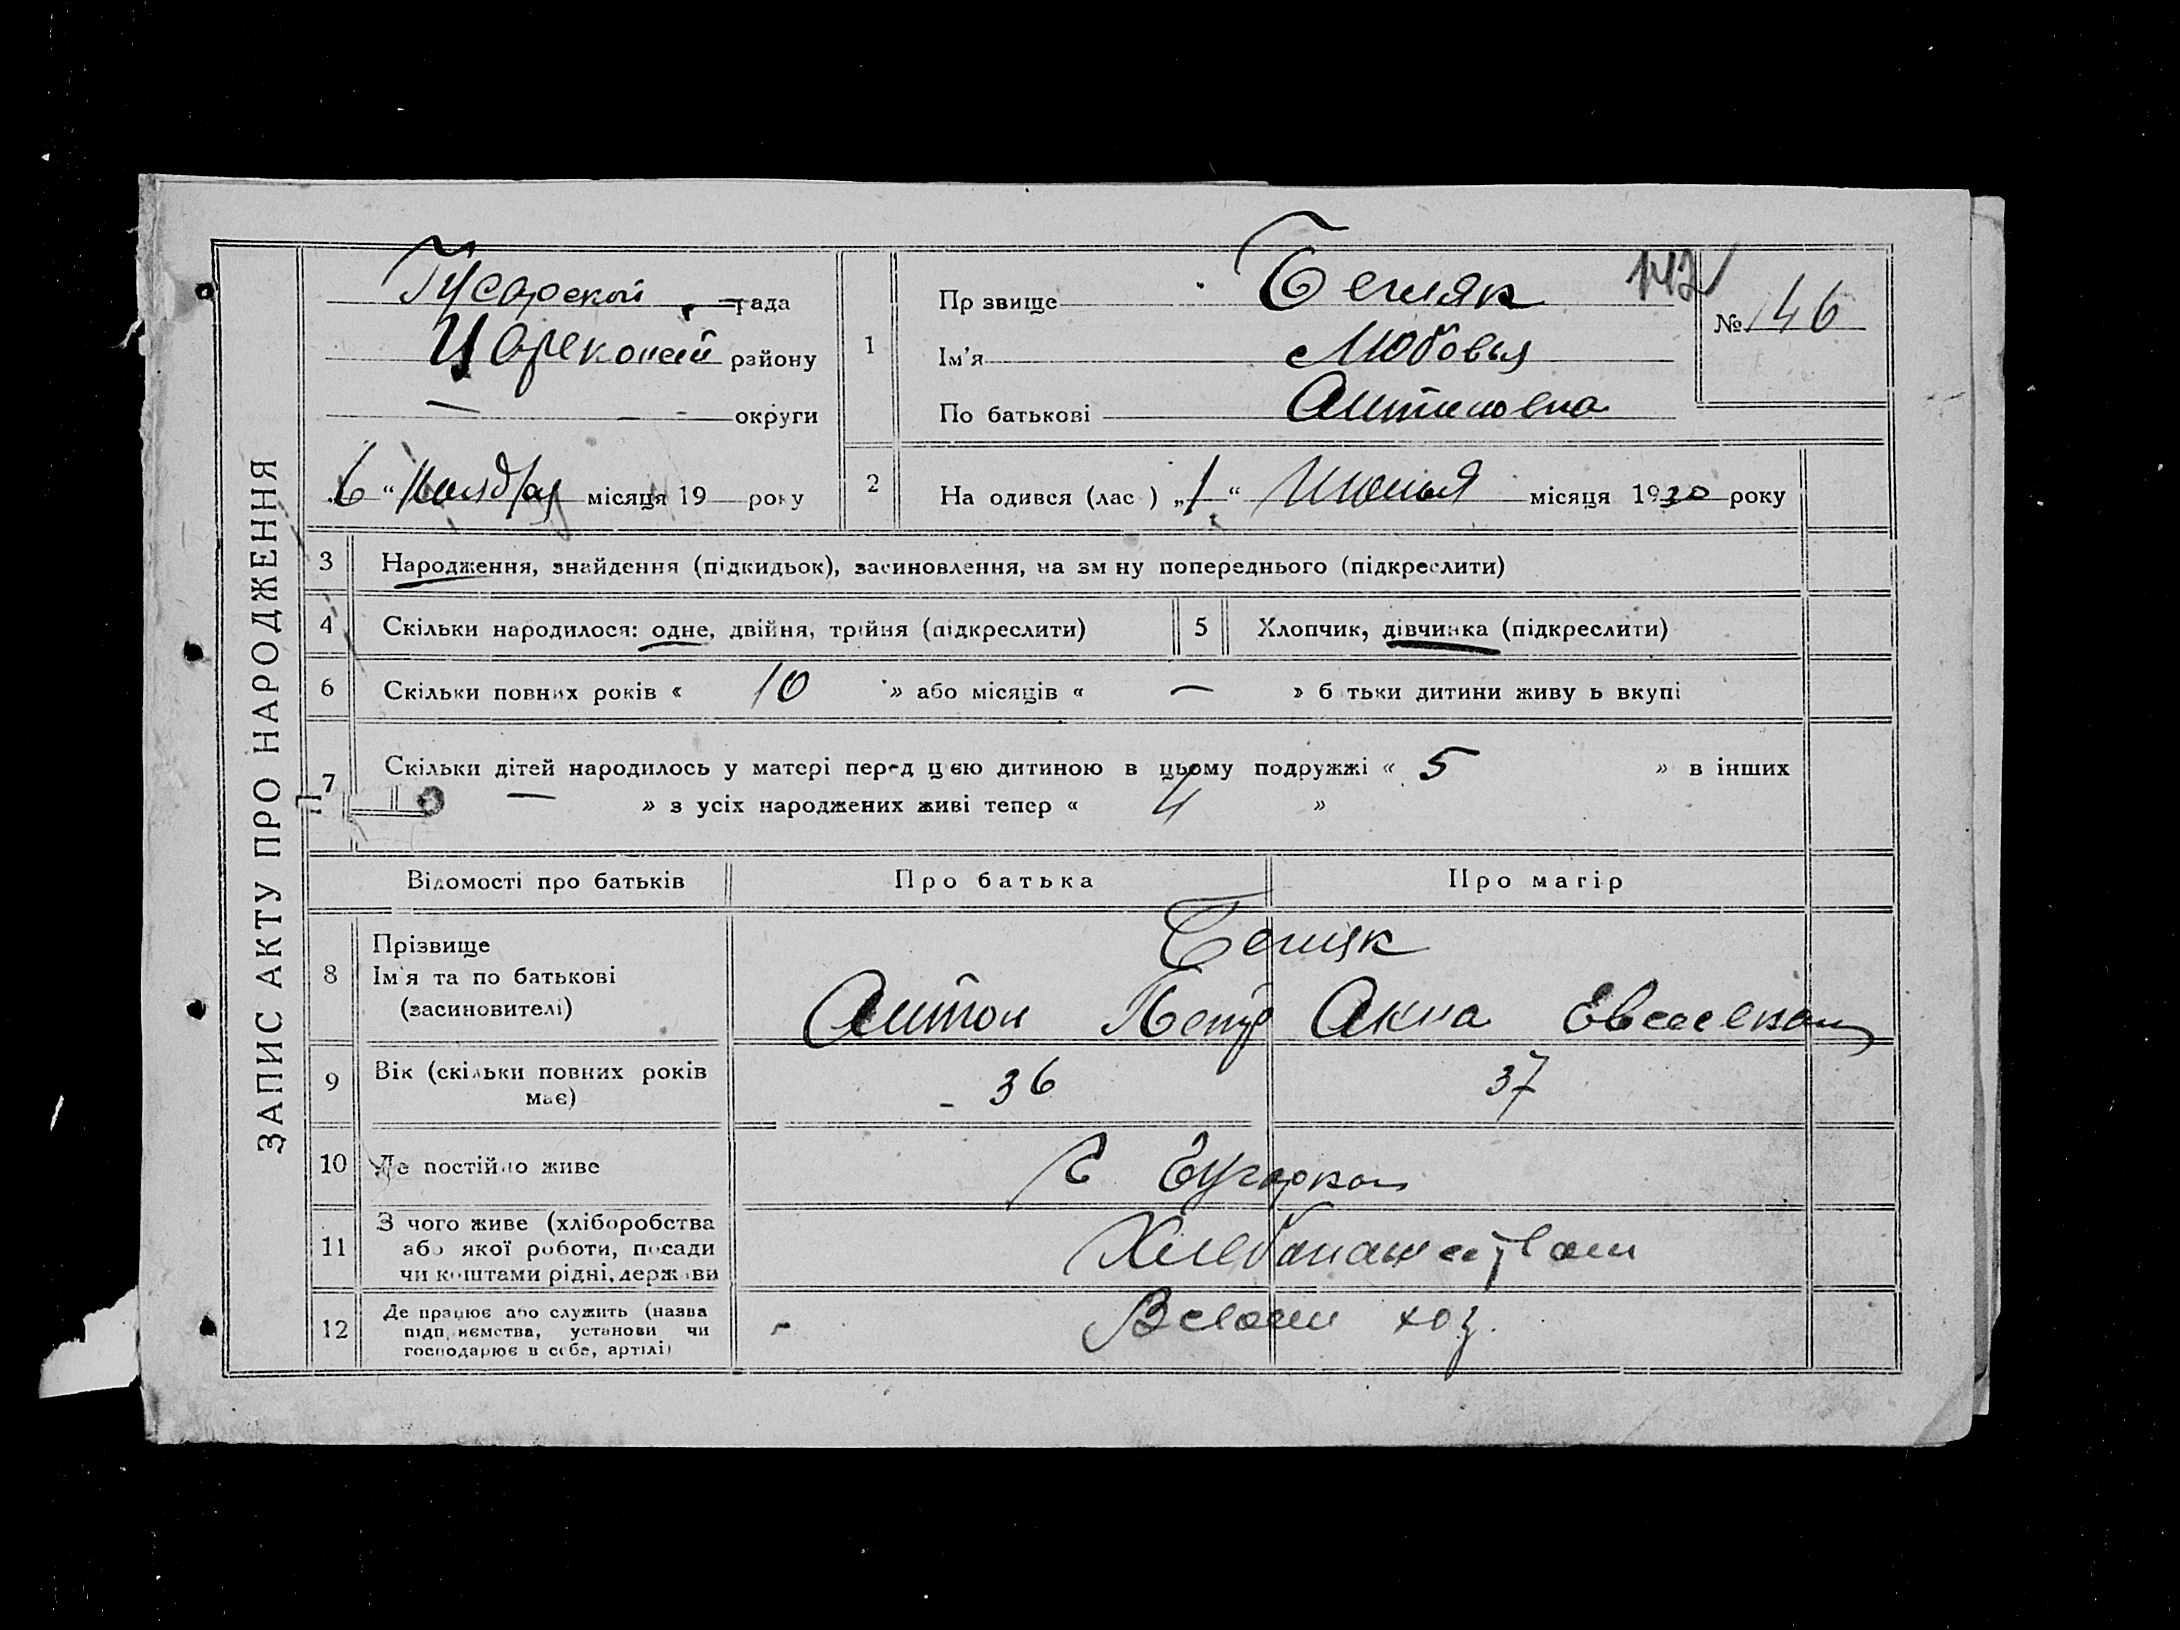 ЗАПИС АКТУ ПРО НАРОДЖЕННЯ
Гусарской рада
району
— округи
6 " Ноября місяця 19 року
1
Пр звище Беляк 142
Ім'я Любовья
По батькові Антиновна
№ 146
2 На одився (лас ) „1“ Июлья місяця 1930 року
3 Народження, знайдення (підкидьок), засиновлення, на зм ну попереднього (підкреслити)
4 Скільки народилося: одне, двійня, трійня (підкреслити) 5 Хлопчик, дівчинка (підкреслити)
6 Скільки повних років « 10 » або місяців « — » б тьки дитини живу ь вкупі
7 Скільки дітей народилось у матері перед цією дитиною в цьому подружжі « 5 » в інших
— » з усіх народжених живі тепер « 4 »
Відомості про батьків Про батька Про матір
8 Прізвище
Ім'я та по батькові
(засиновителі)
Беляк
Антон Петр Анна
9 Вік (скільки повних років має) 36 37
10 Де постійно живе с
11 З чого живе (хліборобства
або якої роботи, посади
чи коштами рідні, держави
12 Де працює або служить (назва
підп иємства, установи чи
господарює в себе, артілі)
хоз.